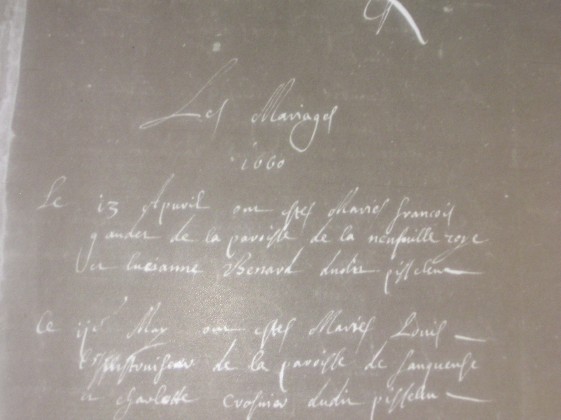 Les Mariages
1660
Le 13 Apuril ont estes Maries francois
de la paroisse de la neufuille roye
et lucianne Benard dudit pisseleu
Le May ont estes Maries Louis
de la paroisse de sanqueuse
et charlotte crosnier dudit pisseleu